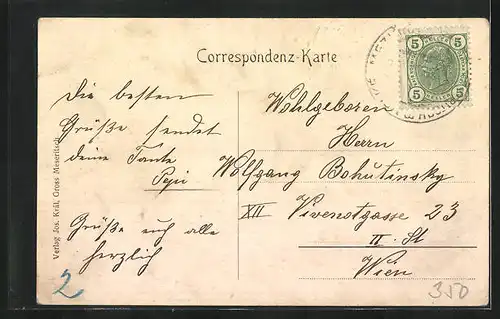 Correspondenz-Karte
Die besten
Grüße sendet
deine Tante
Pepi
Grüße euch alle
herzlich
Wohlgeboren
Herrn
Wolfgang Bohutinsky
XII Vivenotgasse 23
II. St
Wien
Verlag Jos. Král, Gross Meseritsch
5 5
5 5
2
350